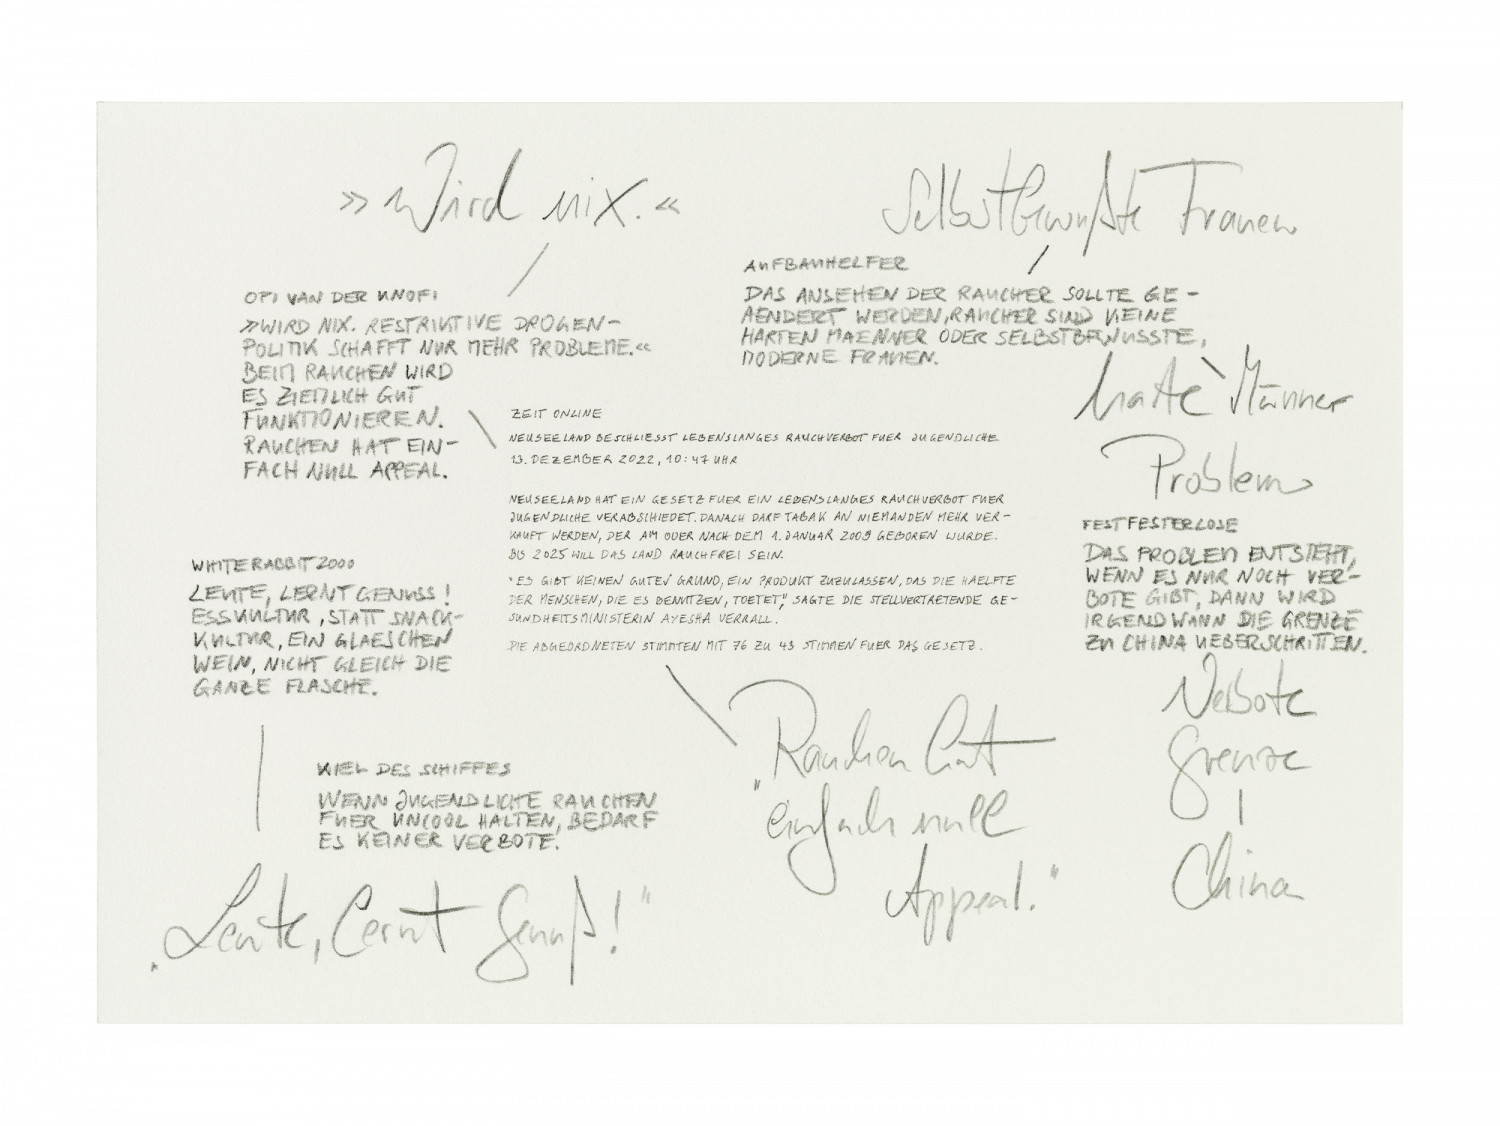 »Wird nix.«
OPI VAN DER KNOFI
»WIRD NIX. RESTRIKTIVE DROGEN-
POLITIK SCHAFFT NUR MEHR PROBLEME.«
BEIM RAUCHEN WIRD
ES ZIEMLICH GUT
FUNKTIONIEREN.
RAUCHEN HAT EIN-
FACH NULL APPEAL.
Selbstbewußte Frauen
AUFBAUHELFER
DAS ANSEHEN DER RAUCHER SOLLTE GE-
AENDERT WERDEN, RAUCHER SIND KEINE
HARTEN MAENNER ODER SELBSTBEWUSSTE,
MODERNE FRAUEN.
harte Männer
ZEIT ONLINE
NEUSEELAND BESCHLIESST LEBENSLANGES RAUCHVERBOT FUER JUGENDLICHE
13. DEZEMBER 2022, 10:47 UHR
NEUSEELAND HAT EIN GESETZ FUER EIN LEBENSLANGES RAUCHVERBOT FUER
JUGENDLICHE VERABSCHIEDET. DANACH DARF TABAK AN NIEMANDEN MEHR VER-
KAUFT WERDEN, DER AM ODER NACH DEM 1. JANUAR 2009 GEBOREN WURDE.
BIS 2025 WILL DAS LAND RAUCHFREI SEIN.
"ES GIBT KEINEN GUTEN GRUND, EIN PRODUKT ZUZULASSEN, DAS DIE HAELFTE
DER MENSCHEN, DIE ES BENUTZEN, TOETET", SAGTE DIE STELLVERTRETENDE GE-
SUNDHEITSMINISTERIN AYESHA VERRALL.
DIE ABGEORDNETEN STIMMTEN MIT 76 ZU 43 STIMMEN FUER DAS GESETZ.
Problem
FESTFESTERLOSE
DAS PROBLEM ENTSTEHT,
WENN ES NUR NOCH VER-
BOTE GIBT, DANN WIRD
IRGENDWANN DIE GRENZE
ZU CHINA UEBERSCHRITTEN.
Verbote
Grenze
China
WHITERABBIT2000
LEUTE, LERNT GENUSS!
ESSKULTUR, STATT SNACK-
KULTUR, EIN GLAESCHEN
WEIN, NICHT GLEICH DIE
GANZE FLASCHE.
KIEL DES SCHIFFES
WENN JUGENDLICHE RAUCHEN
FUER UNCOOL HALTEN, BEDARF
ES KEINER VERBOTE.
"Rauchen hat
einfach null
Appeal."
"Leute, lernt Genuß!"